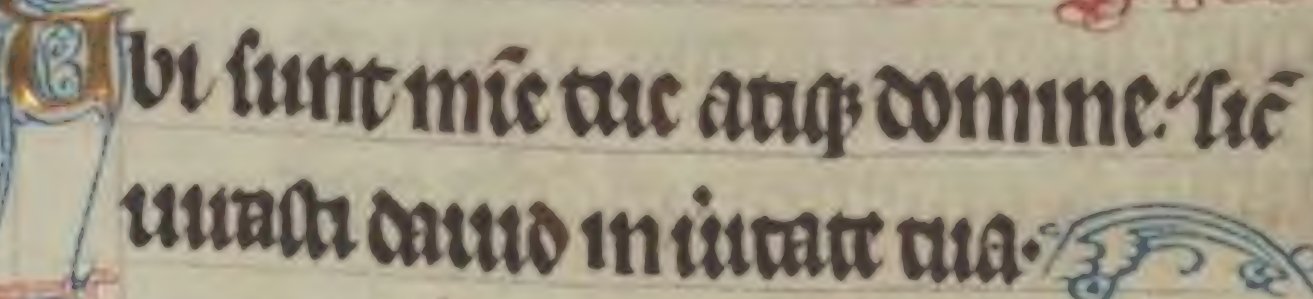 Ubi sunt mīe tue atiqꝫ domine: sic̄
iurasti dauid in ũitate tua·